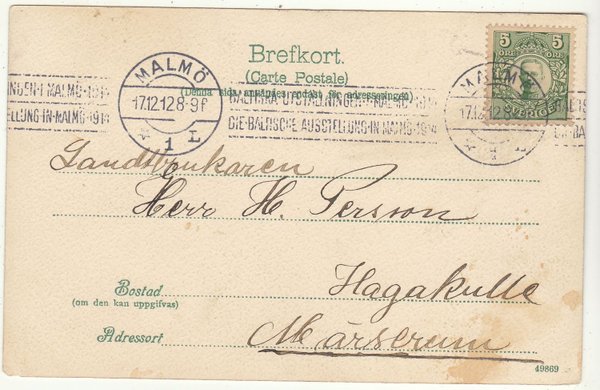 Brefkort.
(Carte Postale)
(Denna sida användes endast för adresseringen)
5 5
ÖRE
SVERIGE
MALMÖ
17.12.12.8-9 F
1 L
MALMÖ
17.12.12.8
1 L
NINGEN-I MALMÖ-1914
ELLUNG IN-MALMÖ-1914
BALTISKA-UTSTÄLLNINGEN-I MALMÖ-1914
DIE-BALTISCHE AUSSTELLUNG-IN MALMÖ-1914
Landtbrukaren
Herr H. Persson
Hagakulle
Bostad
(om den kan uppgifvas)
Adressort
Märserum
49869